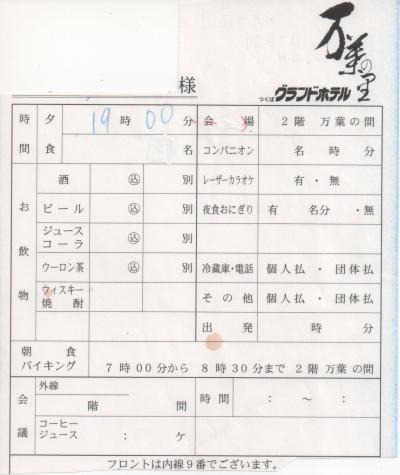 万葉の里
様
つくば グランドホテル
時間 夕食 19時00分 会場 2階 万葉の間
名 コンパニオン 名 時 分
お飲物 酒 込 別 レーザーカラオケ 有・無
ビール 込 別 夜食おにぎり 有 名分・無
ジュース コーラ 込 別
ウーロン茶 込 別 冷蔵庫・電話 個人払・団体払
ウィスキー 焼酎 その他 個人払・団体払
出発 時 分
朝食 バイキング 7時00分から 8時30分まで 2階 万葉の間
会議 外線
階 間 時間 : ～ :
コーヒー ジュース : ケ
フロントは内線9番でございます。